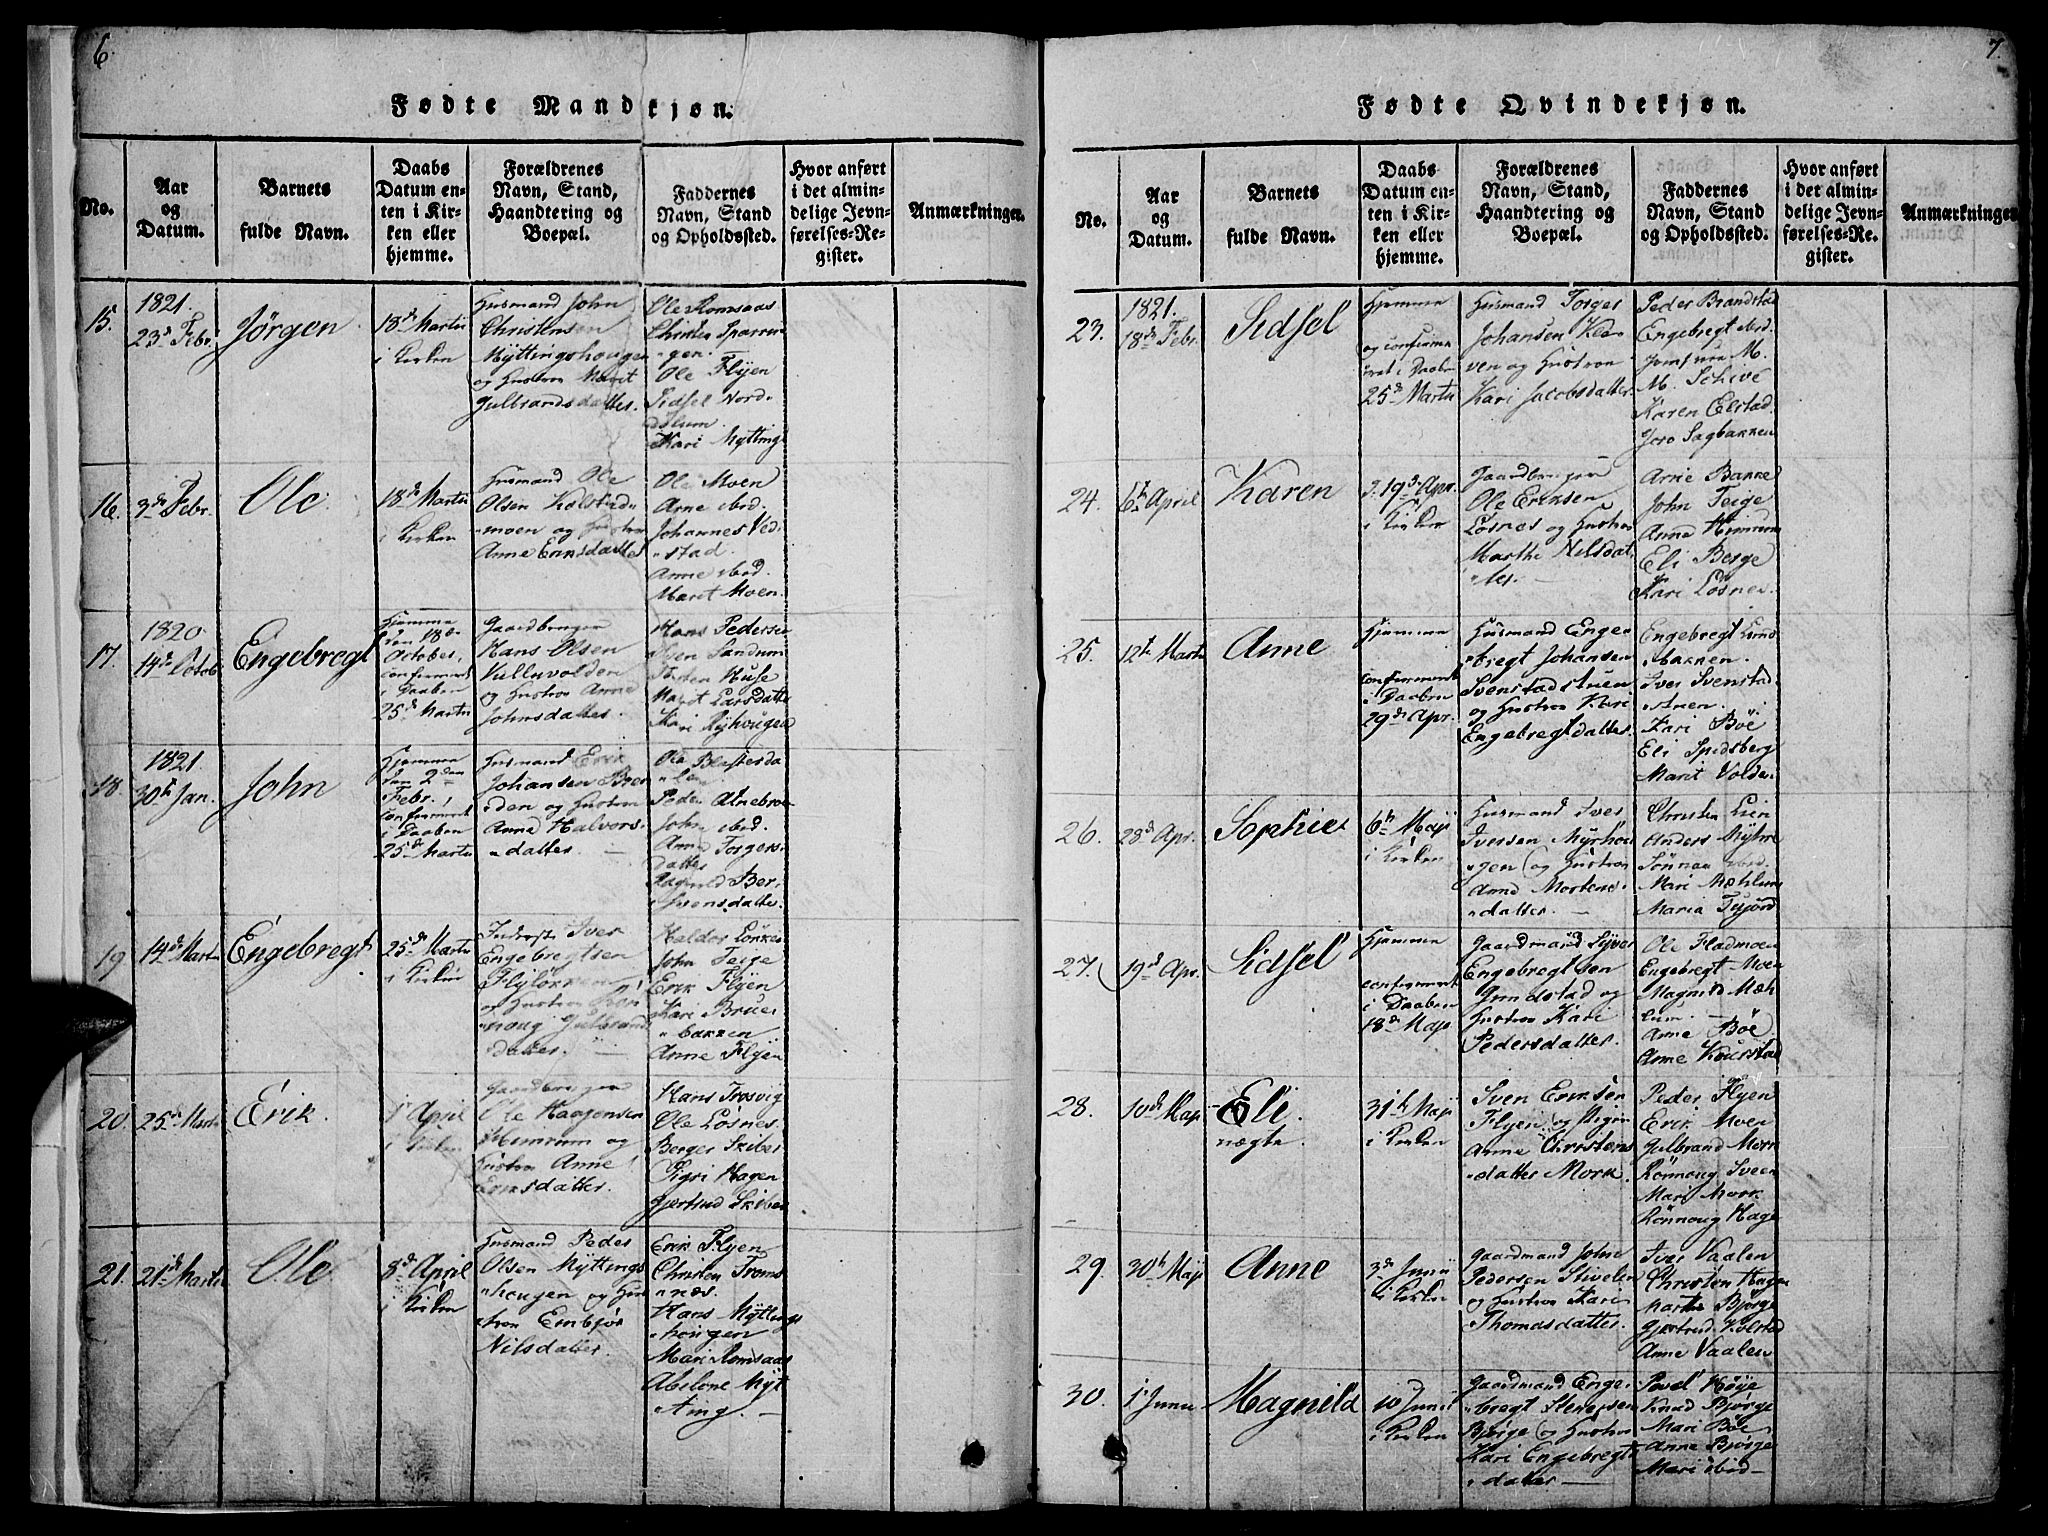 6.
Fødte Mandkjøn.
No.
Aar
og
Datum.
Barnets
fulde Navn.
Daabs
Datum en-
ten i Kir-
ken eller
hjemme.
Forældrenes
Navn, Stand,
Haandtering og
Boepæl.
Faddernes
Navn, Stand
og Opholdssted.
Hvor anført
i det almin-
delige Jevn-
førelses-Re-
gister.
Anmærkninger.
15.
1821.
23d Febr.
Jørgen
18de Martii
i Kirken
Husmand John
Christensen
Myttingshougen
og Hustroe Marit
Gulbrandsdatter.
Ole Romsaas
Christen Sparrun
"gen.
Ole Flÿen
Sidsel Nord-
Kari Mytting
16.
3de Febr.
Ole
18de Martii
i Kirken
Husmand Ole
Olsen Kolstad-
"moen og Hustroe
Anne Eriksdatter
Ole Moen
Arne ibid.
Johannes Ved-
"stad.
Anne ibid.
Marit Moen.
17.
1820
14de Octob
Engebregt
Hjemme
den 18de
October,
confirmeret
i Daaben
25de Martii
Gaardbruger
Hans Olsen
Kulluvolden
og Hustroe Anne
Johnsdatter.
Hans Pedersen
Iven Sandum
Torsten Huse
Marit Larsdatter
Kari Ryhougen
18.
1821.
30te Jan.
John
Hjemme
den 2den
Febr.,
confirmeret
i Daaben
25de Martii
Husmand Erik
Johansen Bræn
"den og Hustroe
Anna Halvors-
"datter.
Ole Blestersda
"len
Peder Atnebroe
John ibid.
Anna Torgers-
datter
Ragnild Ber-
"svensdatter.
19
14de Martii
Engebregt
25de Martii
i Kirken
Inderste Iver
Engebregtsen
Flÿløkken
og Hustroe Røn
"noug Gulbrands
datter.
Haldor Løkken
John Teige
Erik Flÿen
Kari Brue-
"bakken
Anne Flÿen
20.
25de Martii
Erik.
1ste April
i Kirken
Gaardbruger
Ole Haagensen
Heimrum og
Hustroe Anne
Eriksdatter.
Hans Trosvig
Ole Løsnes
Berger Skiber
Sigri Hagen
Gjertrud Skiber
21.
21de Martii
Ole
8de April
i Kirken
Husmand Peder
Olsen Myttings-
"hougen og Hus
"troe Embjør
Nilsdatter.
Erik Flÿen
Christen Troms
"næs.
Hans Myttings-
"hougen
Mari Romsaas
Abelone Myt
"ting.
7.
Fødte Qvindekjøn.
No.
Aar
og
Datum.
Barnets
fulde Navn.
Daabs
Datum en-
ten i Kir-
ken eller
hjemme.
Forældrenes
Navn, Stand,
Haandtering og
Boepæl.
Faddernes
Navn, Stand
og Opholdssted.
Hvor anført
i det almin-
delige Jevn-
førelses-Re-
gister.
Anmærkninger
23.
1821.
18de Febr.
Sidsel
Hjemme
og confirme
"ret i Daaben
25de Martii
Husmand Torger
Johansen Klø-
ven og Hustroe
Kari Jacobsdatter
Peder Brandstad
Engebregt ibid.
Jomfrue M.
M. Schive
Karen Elstad
Joro Sagbakken
24.
6te April
Karen
d. 19de Apr.
i Kirken
Gaardbruger
Ole Eriksen
Løsnes og Hustroe
Marthe Nilsdat
"ter.
Arne Bakke
John Teige
Anna Heimrum
Eli Berge
Kari Løsnes.
25.
12te Martii
Anne
Hjemme
confirmeret
i Daaben
29de Apr.
Husmand Enge
"bregt Johansen
Svenstadstuen
og Hustroe Kari
Engebregtdatter.
Engebregt Lims
"bakken.
Iver Svenstad-
"stuen.
Kari Böe
Eli Spidsberg
Marit Volden
26.
28de Apr.
Sophie
6te Maji
i Kirken
Husmand Iver
Iversen Myrhou
"gen og Hustroe
Anne Mortens-
"datter.
Christen Lien
Anders Myhre
Sönnau ibid.
Mari Mæhlum
27.
19de Apr.
Sidsel
Hjemme
confirmeret
i Daaben
18de Maji
Gaardmand Syver
Engebregtsen
Grudstad og
Hustroe Kari
Pedersdatter.
Ole Fladmoen
Engebregt Moen
Magnild Mæh
"lum.
Anne Böe
Anne Kaarstad
28.
10de Maji
Eli
uægte
31te Maji
i Kirken
Sven Eriksen
Flyen og Pigen
Anne Christens
"datter Mork.
Peder Flyen
Erik Moen
Gulbrand Mork
Rønnoug Sveen
Mari Mork
Rønnoug Hage
29.
30te Maji
Anne
3de Junii
i Kirken
Gaardmand John
Pedersen Stivelen
og Hustroe Kari
Thomasdatter.
Iver Vaalen
Christen Hagen
Marthe Bjørge
Gjertrud Kolstad
Anne Vaalen
30.
1ste Junii
Magnild
10 Junii
i Kirken
Gaardmand Enge-
"bregt Stenersen
Bjørge og Hustroe
Kari Engebregts
"datter
Povel Høÿe
Knud Bjørge
Mari Böe
Anne Bjørge
Mari ibid